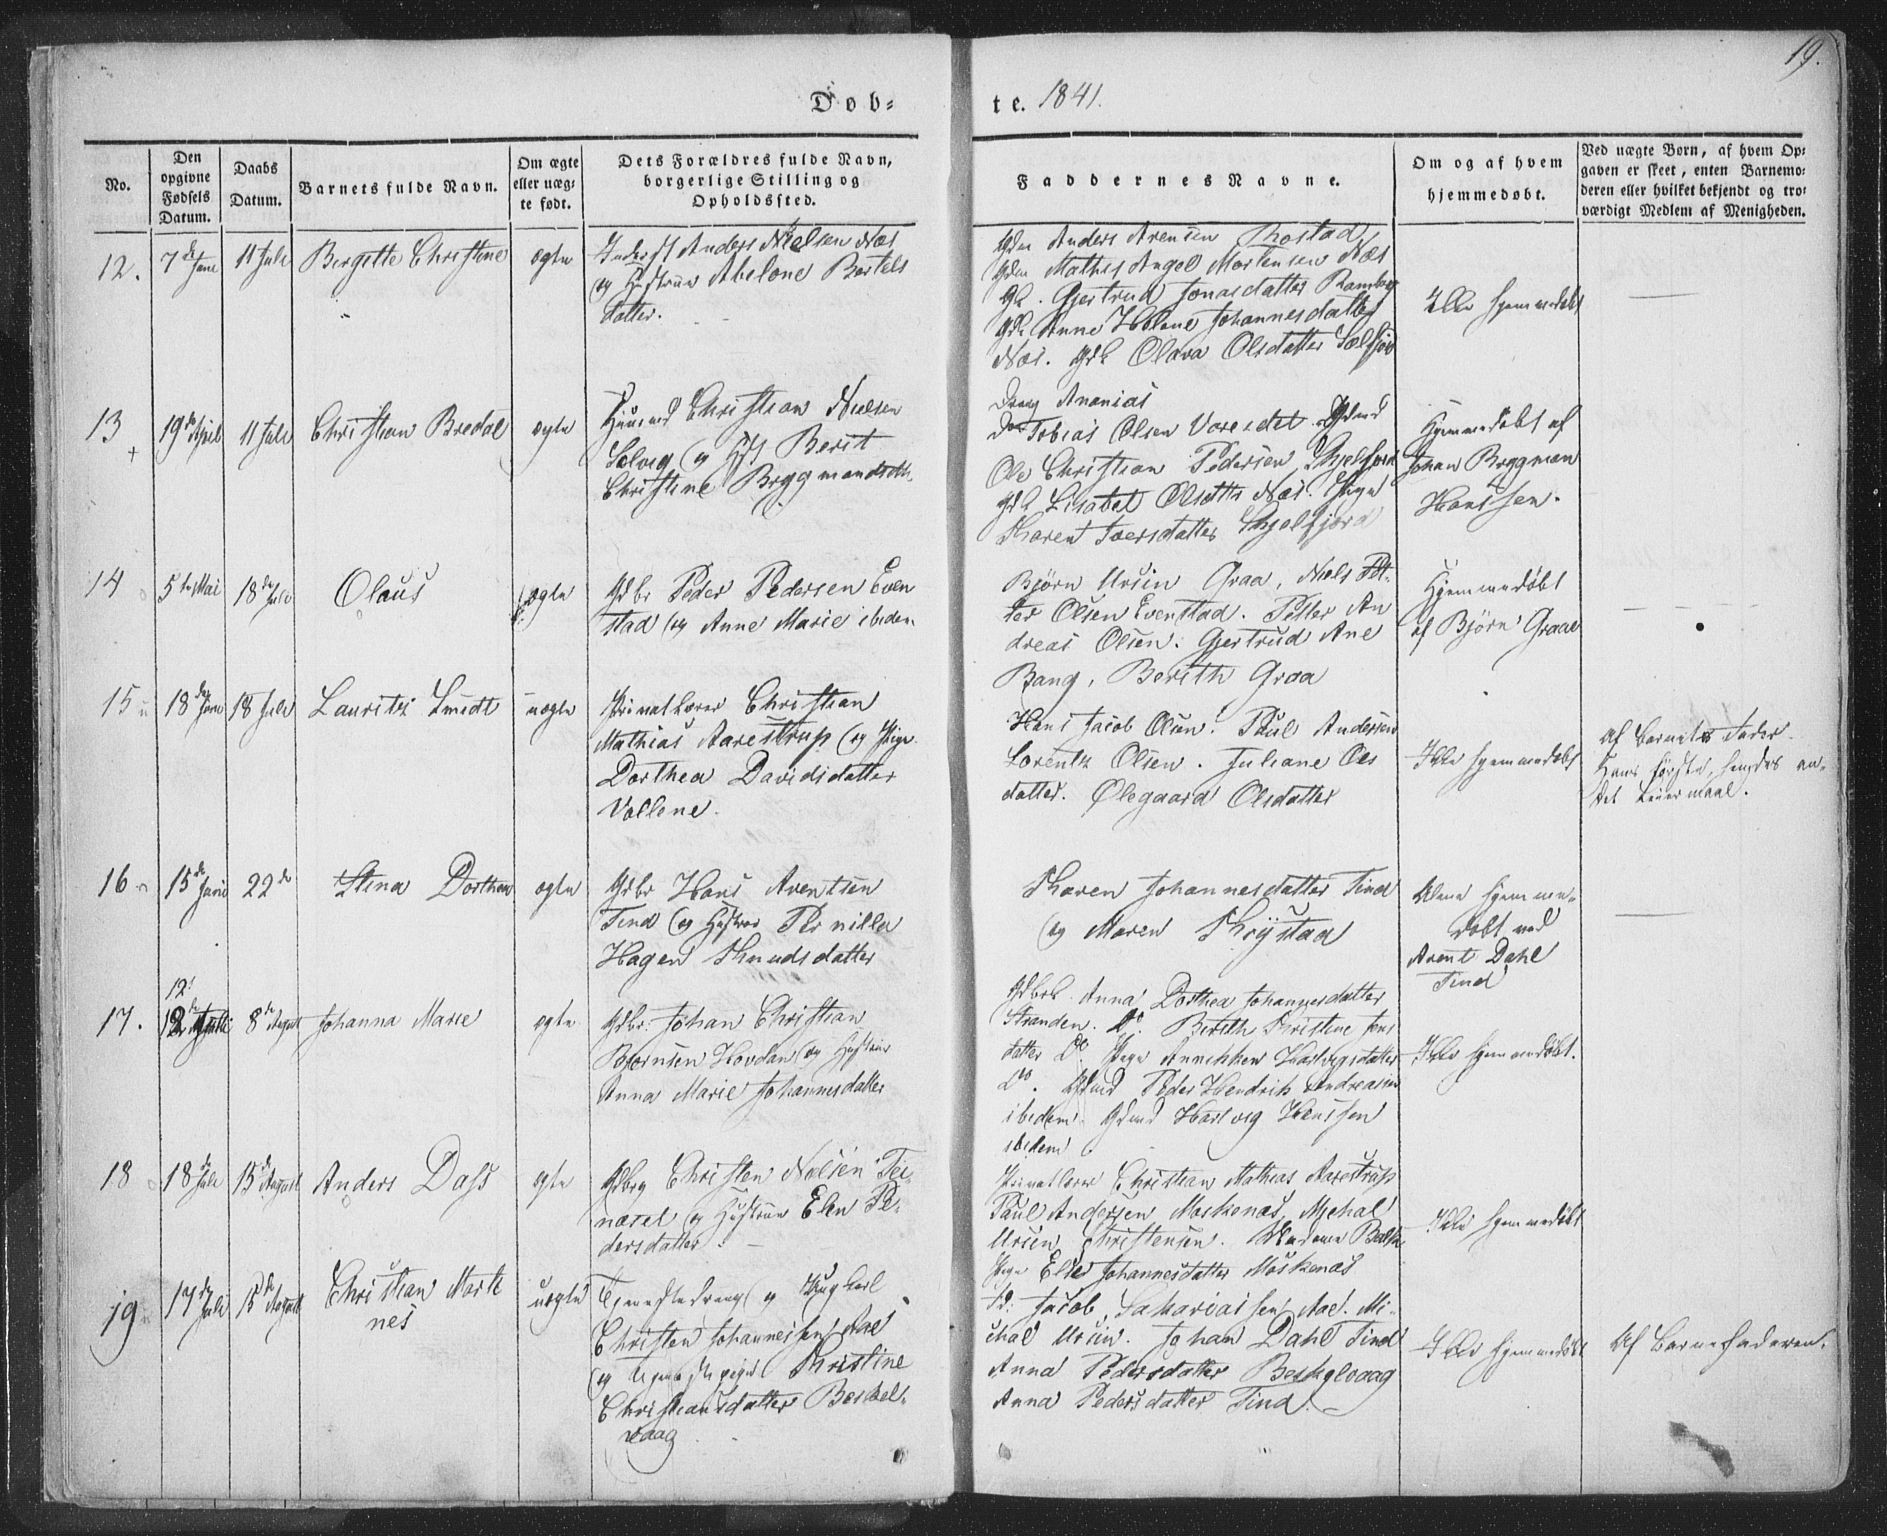 19.
Døb=
te. 1841.
No.
Den opgivne Fødsels Datum.
Daabs Datum.
Barnets fulde Navn.
Om ægte eller uægte født.
Dets Forældres fulde Navn, borgerlige Stilling og Opholdssted.
Faddernes Navne.
Om og af hvem hjemmedøbt.
Ved uægte Børn, af hvem Opgaven er skeet, enten Barnemoderen eller hvilket bekjendt og troværdigt Medlem af Menigheden.
12.
7de Juni
11 Juli
Birgitte Christine
ægte
Anders Nielsen Næs
og Hustrue Abelone Bertels
datter.
Gdm Anders Arensen Rostad
Gdm Mathis Angel Mortensen Næs
Gk. Gjertrud Jonasdatter Ramberg
Gdk Anne Helene Johannesdatter
Næs. Gdk Olava Olsdatter Sælfjor
Ikke hjemmedøbt
13
19de April
11 Juli
Christian Bredal
ægte
Huusmd Christian Nielsen
Solvog og Hst Berit
Christine Bryggmandsdtr.
Dreng Ananias
Do Tobias Olsen Vareidet. Gdmd
Ole Christian Pedersen Skjelfjord
Gdk Lisabet Olsdtr Næs. Pige
Karen Iversdatter Skjelfjord
Hjemmedøbt af
Johan Bryggman
Hanssen.
14
5te Mai
18de Juli
Olaus
ægte
Gdbr Peder Pedersen Even
stad og Anne Marie ibidem
Bjørn Ursin Graa, Niels Pet-
ter Olsen Evenstad. Petter An
dreas Olsen. Gjertrud Ane
Bang, Berith Graa
Hjemmedøbt
af Bjørn Graae
15
18de Juni
18 Juli
Lauritz Smidt
uægte
Privatlærer Christian
Mathias Aarestrup og Pige
Dorthea Davidsdatter
Vollene.
Hans Jacob Olsen. Paul Andersen
Lorentz Olsen. Juliane Ols
datter. Olegaard Olsdatter
Ikke hjemmedøbt
Af Barnets Fader.
Hans første, hendes an-
det Leiermaal.
16
15de Juni
22de
Stina Dorthea
ægte
Gdbr Hans Arentsen
Tind og Hustroe Pernille
Hagen Knudsdatter
Karen Johannesdatter Tind
og Maren Krystad
hjemme-
døbt ved
Arent Dahl
Tind
17.
12
Juli
8de August
Johanna Marie
ægte
Gdbr. Johan Christian
Bjørnsen Hovdan og Hustrue
Anna Marie Johannesdatter
Gdbrk Anna Dorthea Johannesdatter
Stranden. Do Berith Kristine Jens
datter Do. Pige Annikken Hartvigsdatter
Do. Gdmd Peder Hendrik Andreasen
ibidem. Gdmd Hartvig Henssen
ibidem
Ikke hjemmedøbt.
18
18de Juli
15de August
Anders Dass
ægte
Gdbrg Christen Nielsen Tei-
næset og Hustrue Elen Pe-
dersdatter.
Privatlærer Christian Mathias Aarestrup
Paul Andersen Moskenæs, Michal
Ursin Christensen. Madame
Pige Elen Johannesdatter Moskenæs
Ikke hjemmedøbt
19
17de Juli
15de August
Christian Marti
nes
uægte
Tjenestedreng og Ungkarl
Christen Johannessen Aae
og Tjenestepigen Kristine
Christiansdatter Beskel-
vaag
Jacob Sakariassen Aae. Mi-
chal Ursin. Johan Dahl Tind
Anna Pedersdatter Beskelvaag
Anna Pedersdatter Tind.
Ikke hjemmedøbt
Af Barnefaderen.